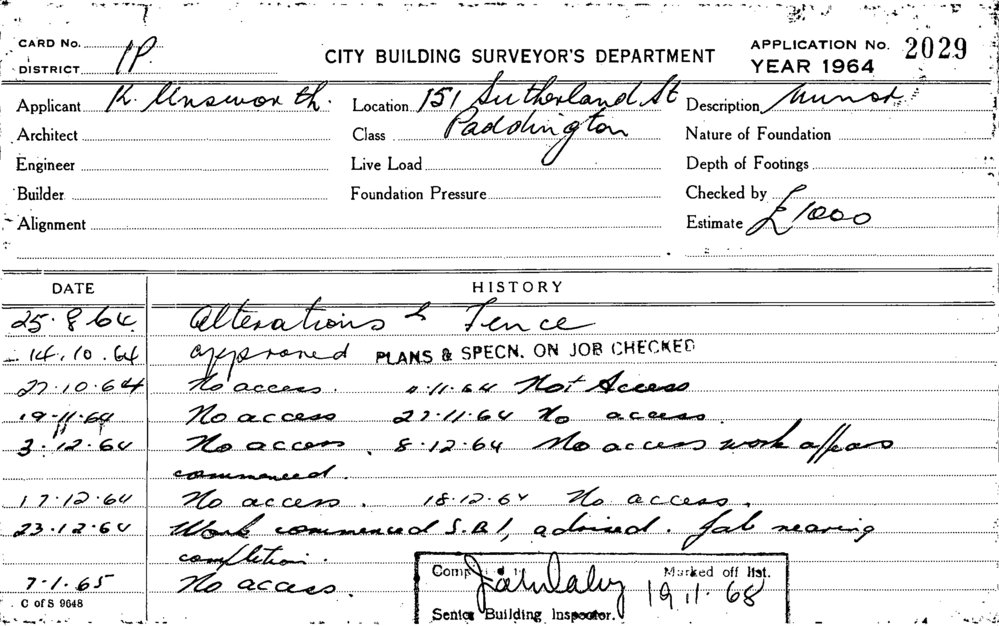 CARD No.
DISTRICT IP.
CITY BUILDING SURVEYOR'S DEPARTMENT
APPLICATION No. 2029
YEAR 1964
Applicant R. Unsworth. Location 151 Sutherland St Description Minor
Architect Class Paddington Nature of Foundation
Engineer Live Load Depth of Footings
Builder Foundation Pressure Checked by
Alignment Estimate £1000
DATE HISTORY
25.8.64. Alterations & Fence
14.10.64 approved PLANS & SPECN. ON JOB CHECKED
27.10.64 No access. 11.64 Not Access
19.11.64 No access 27.11.64 No access.
3.12.64 No access. 8.12.64 No access work appears
commenced.
17.12.64 No access. 18.12.64 No access.
23.12.64 Work commenced S.B.I, advised. Job nearing
completion.
7.1.65 No access.
Marked off list.
19.11.68
Senior Building Inspector.
C of S 9648